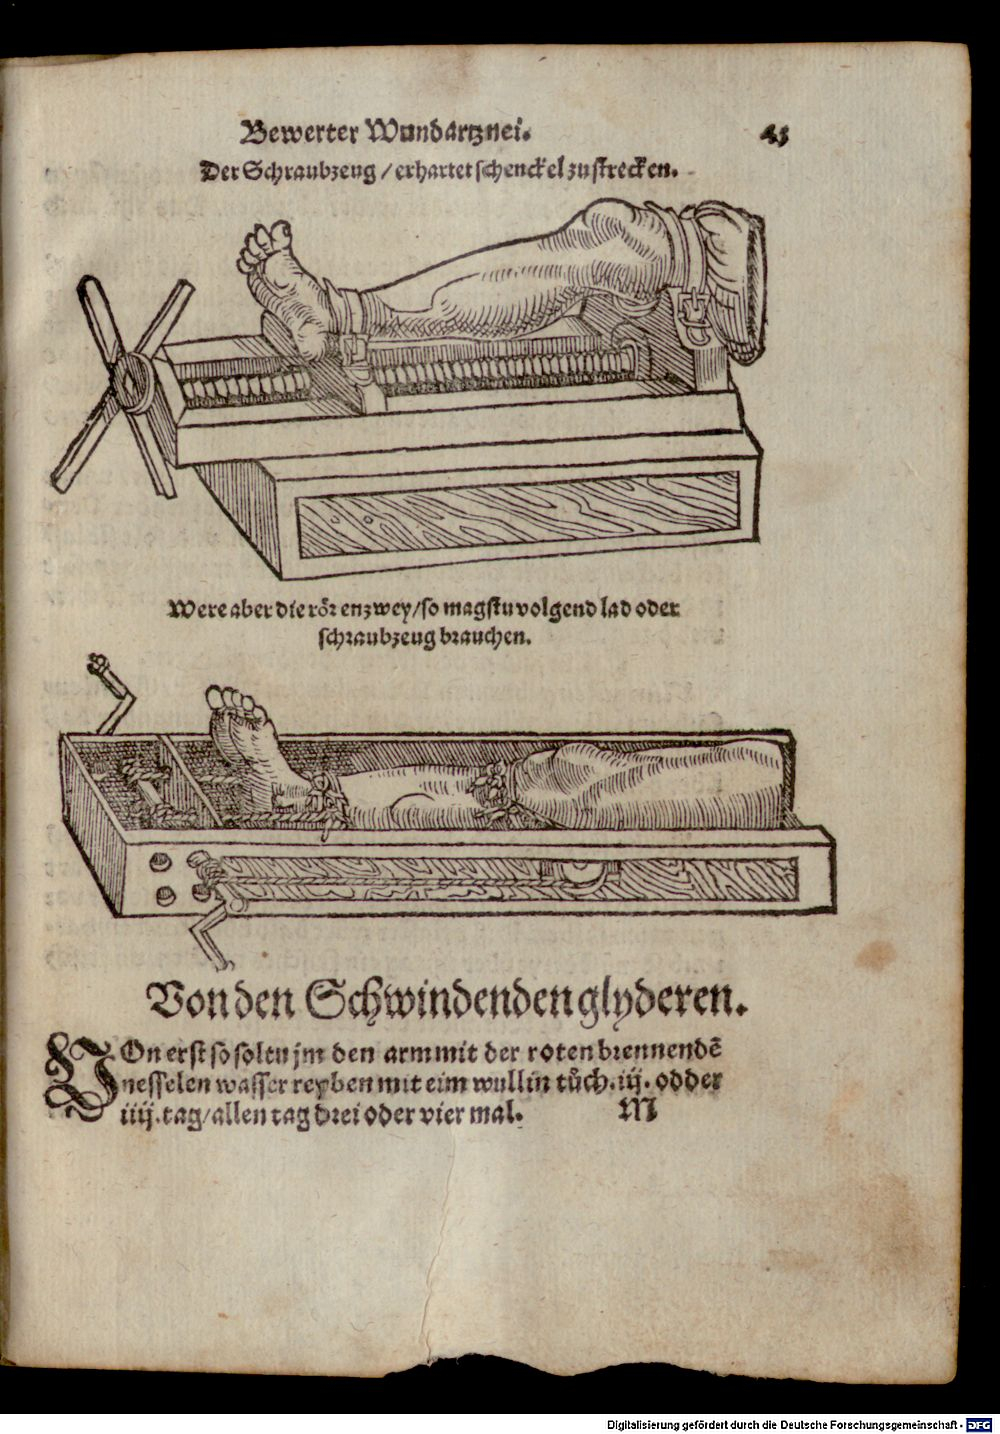 Bewerter Wundartznei. 45
Der Schraubzeug / erhartet schenckel zu strecken.
Were aber die rör enzwey / so magstu volgend lad oder
schraubzeug brauchen.
Von den Schwindenden glyderen.
VOn erst so soltu jm den arm mit der roten brennendē
nesselen wasser reyben mit eim wullin tůch .iij. odder
iiij. tag / allen tag drei oder vier mal.
M
Digitalisierung gefördert durch die Deutsche Forschungsgemeinschaft - DFG